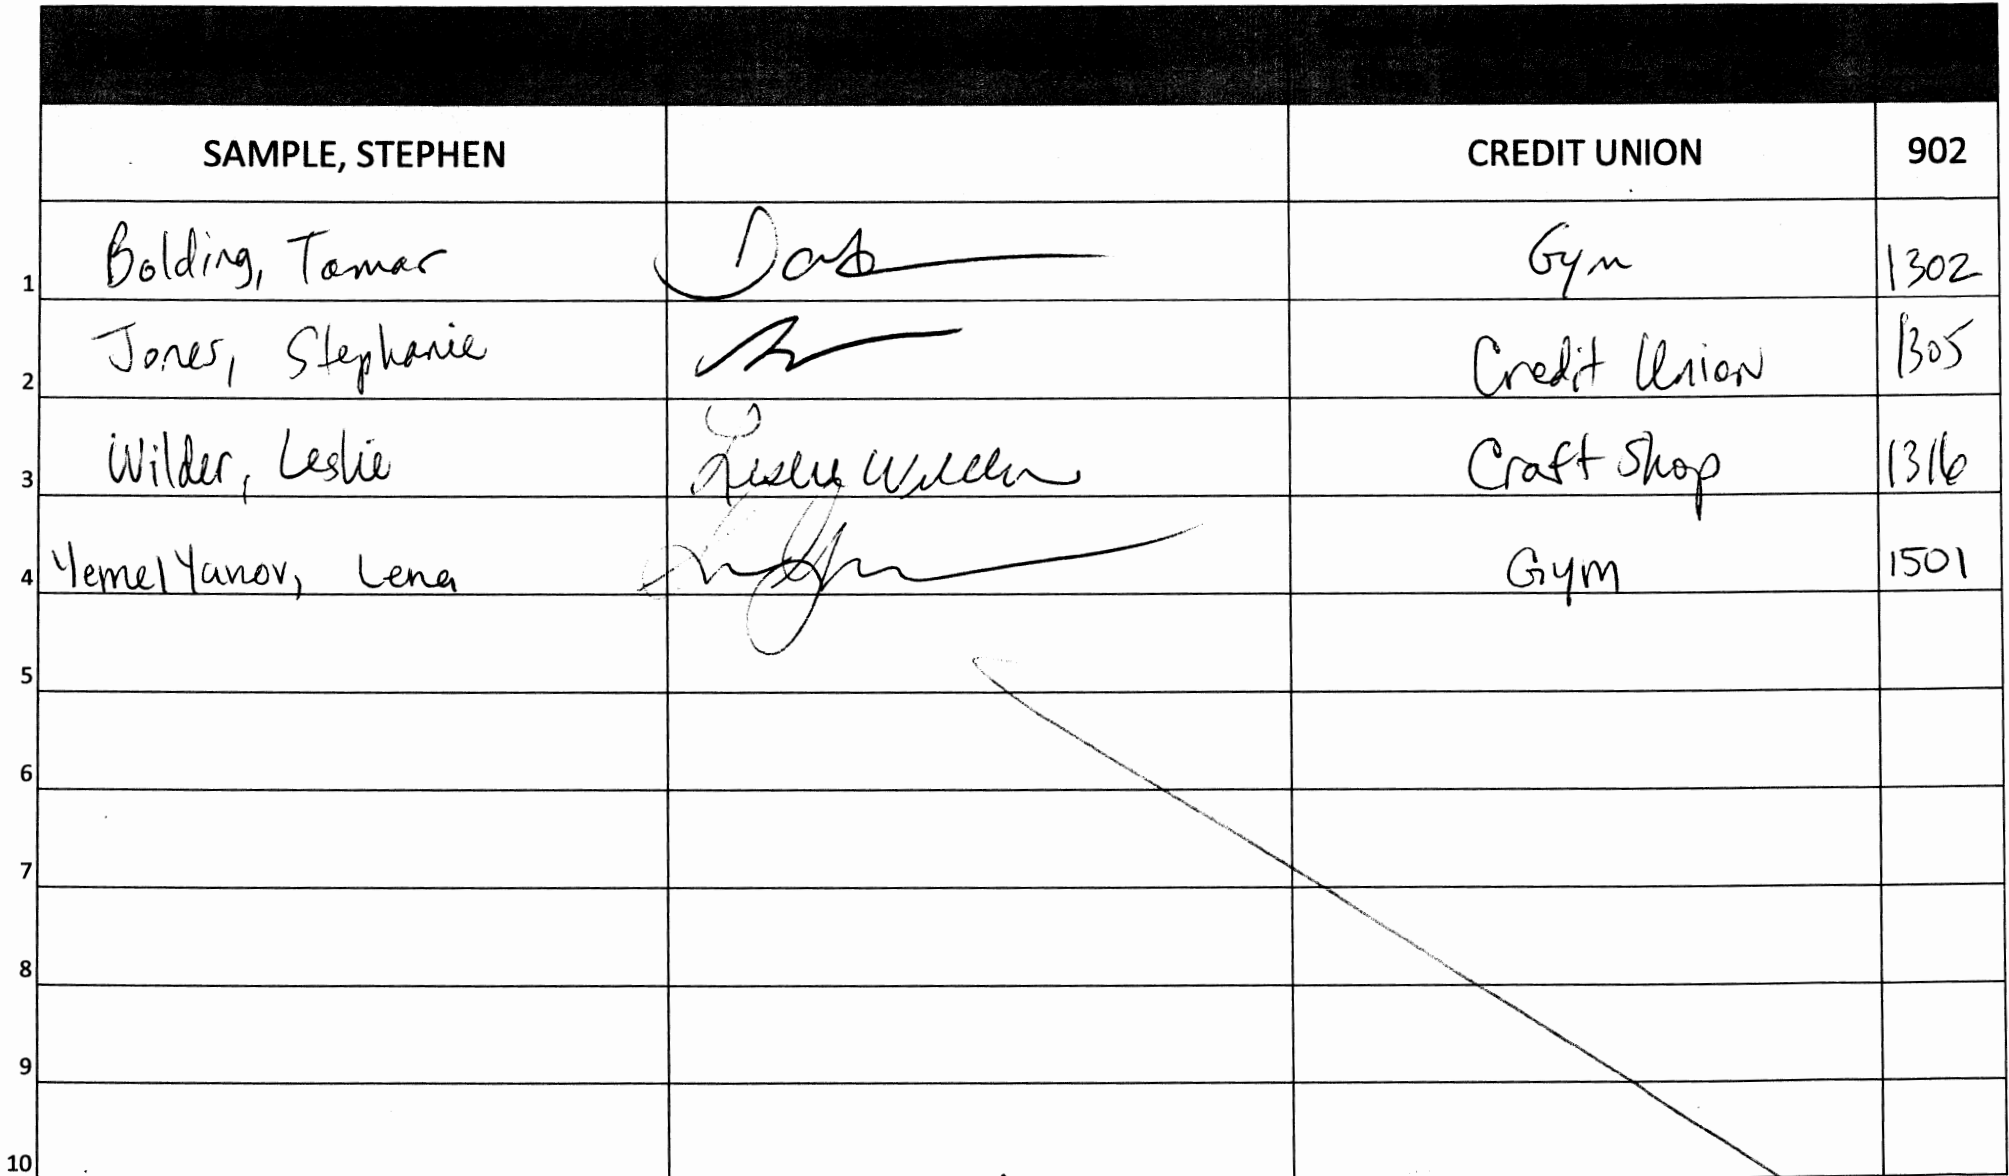 SAMPLE, STEPHEN CREDIT UNION 902
1 Bolding, Tamar Gym 1302
2 Jones, Stephanie Credit Union 1305
3 Wilder, Leslie Leslie Wilder Craft Shop 1316
4 Yemelyanov, Lena Gym 1501
5
6
7
8
9
10